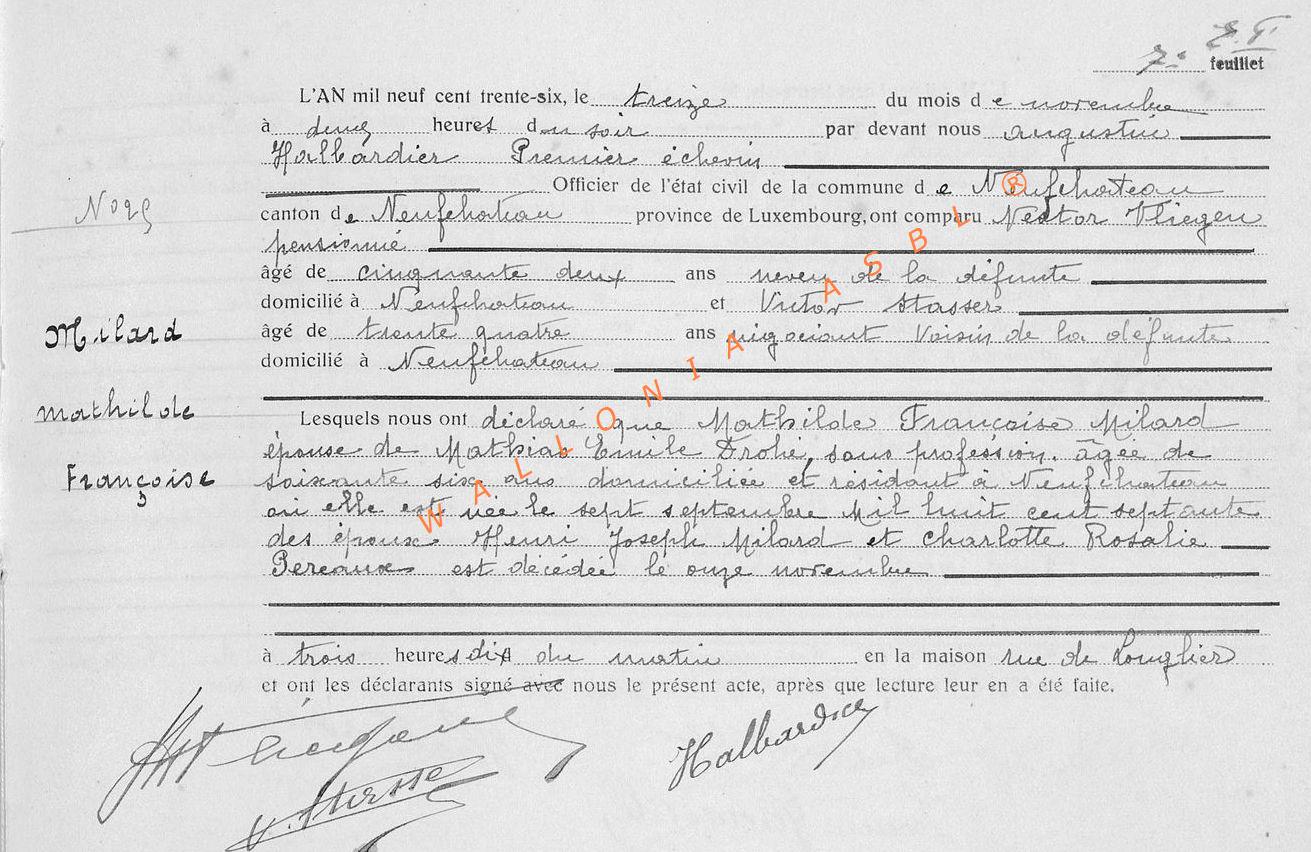 7e
feuillet
L'AN mil neuf cent trente-six, le treize du mois de novembre
à deux heures du soir par devant nous Augustin
Halbardier Premier échevin
Officier de l'état civil de la commune de Neufchateau
canton de Neufchateau province de Luxembourg, ont comparu Nestor Vliegen
pensionné
âgé de cinquante deux ans neveu de la défunte
domicilié à Neufchateau et Victor Stasser
âgé de trente quatre ans négociant Voisin de la défunte
domicilié à Neufchateau
Lesquels nous ont déclaré que Mathilde Françoise Milard
épouse de Mathias Emile Drohé, sans profession, âgée de
soixante six ans domiciliée et résidant à Neufchateau
où elle est née le sept septembre Mil huit cent septante
des époux Henri Joseph Milard et Charlotte Rosalie
Pereaux est décédée le onze novembre
à trois heures dix du matin en la maison rue de Longlier
et ont les déclarants signé avec nous le présent acte, après que lecture leur en a été faite.
No 25
Milard
Mathilde
Françoise
Halbardier
V. Stasse
WALLONIA ASBL ®